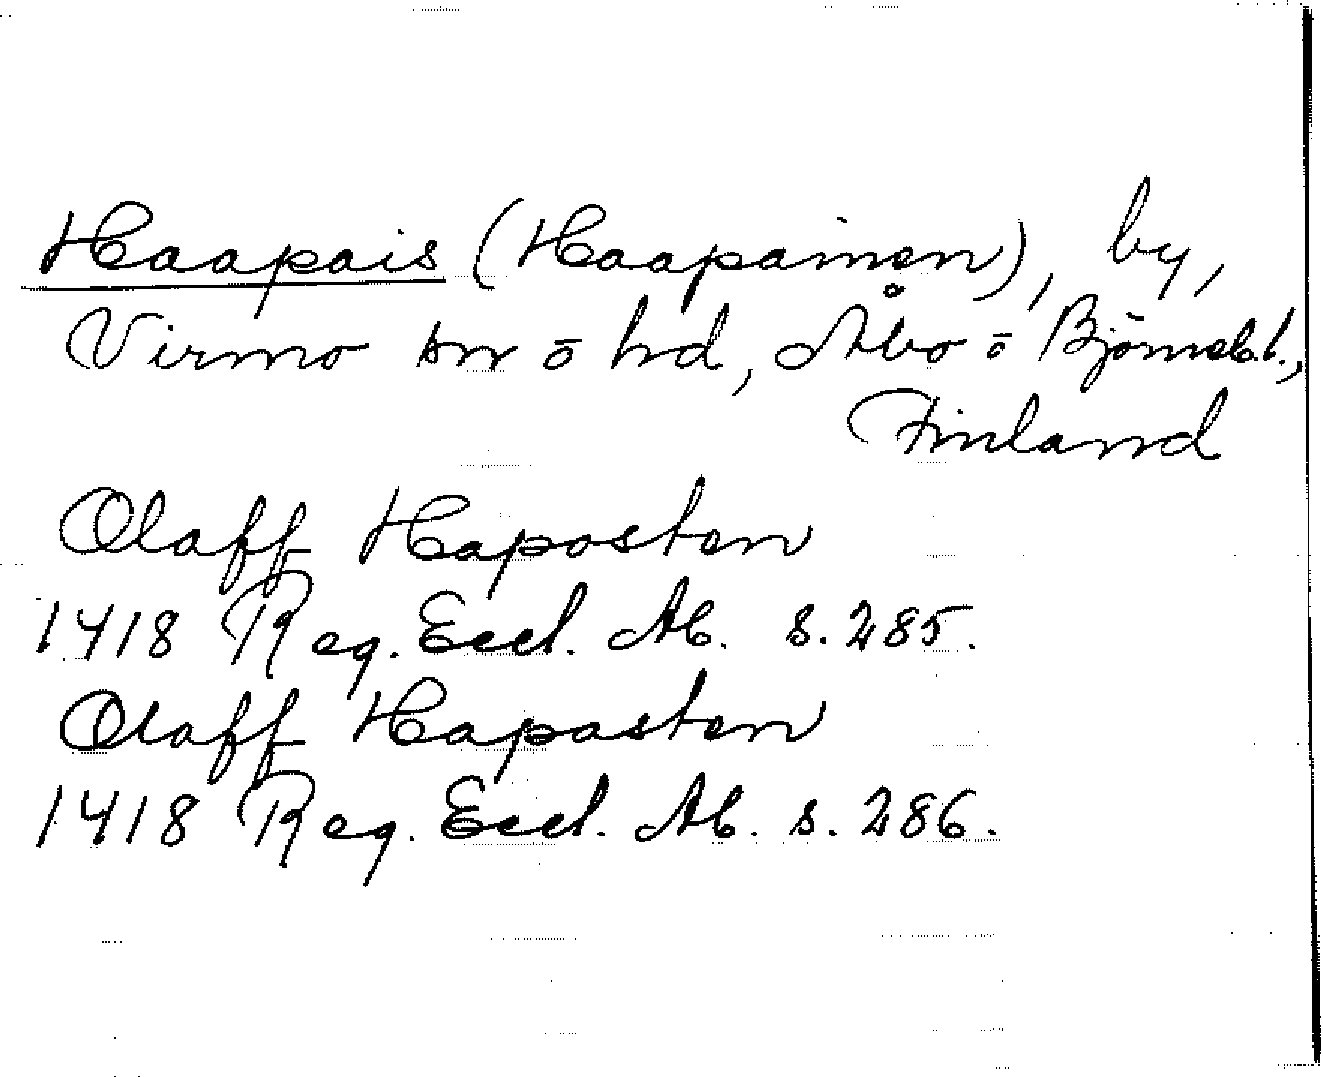 Haapais (Haapainen), by,
Virmo sn ō hd, Åbo ō Björneb.l.,
Finland
Olaff Haposten
1418 Reg. Eccl. Ab. s. 285.
Olaff Haposten
1418 Reg. Eccl. Ab. s. 286.